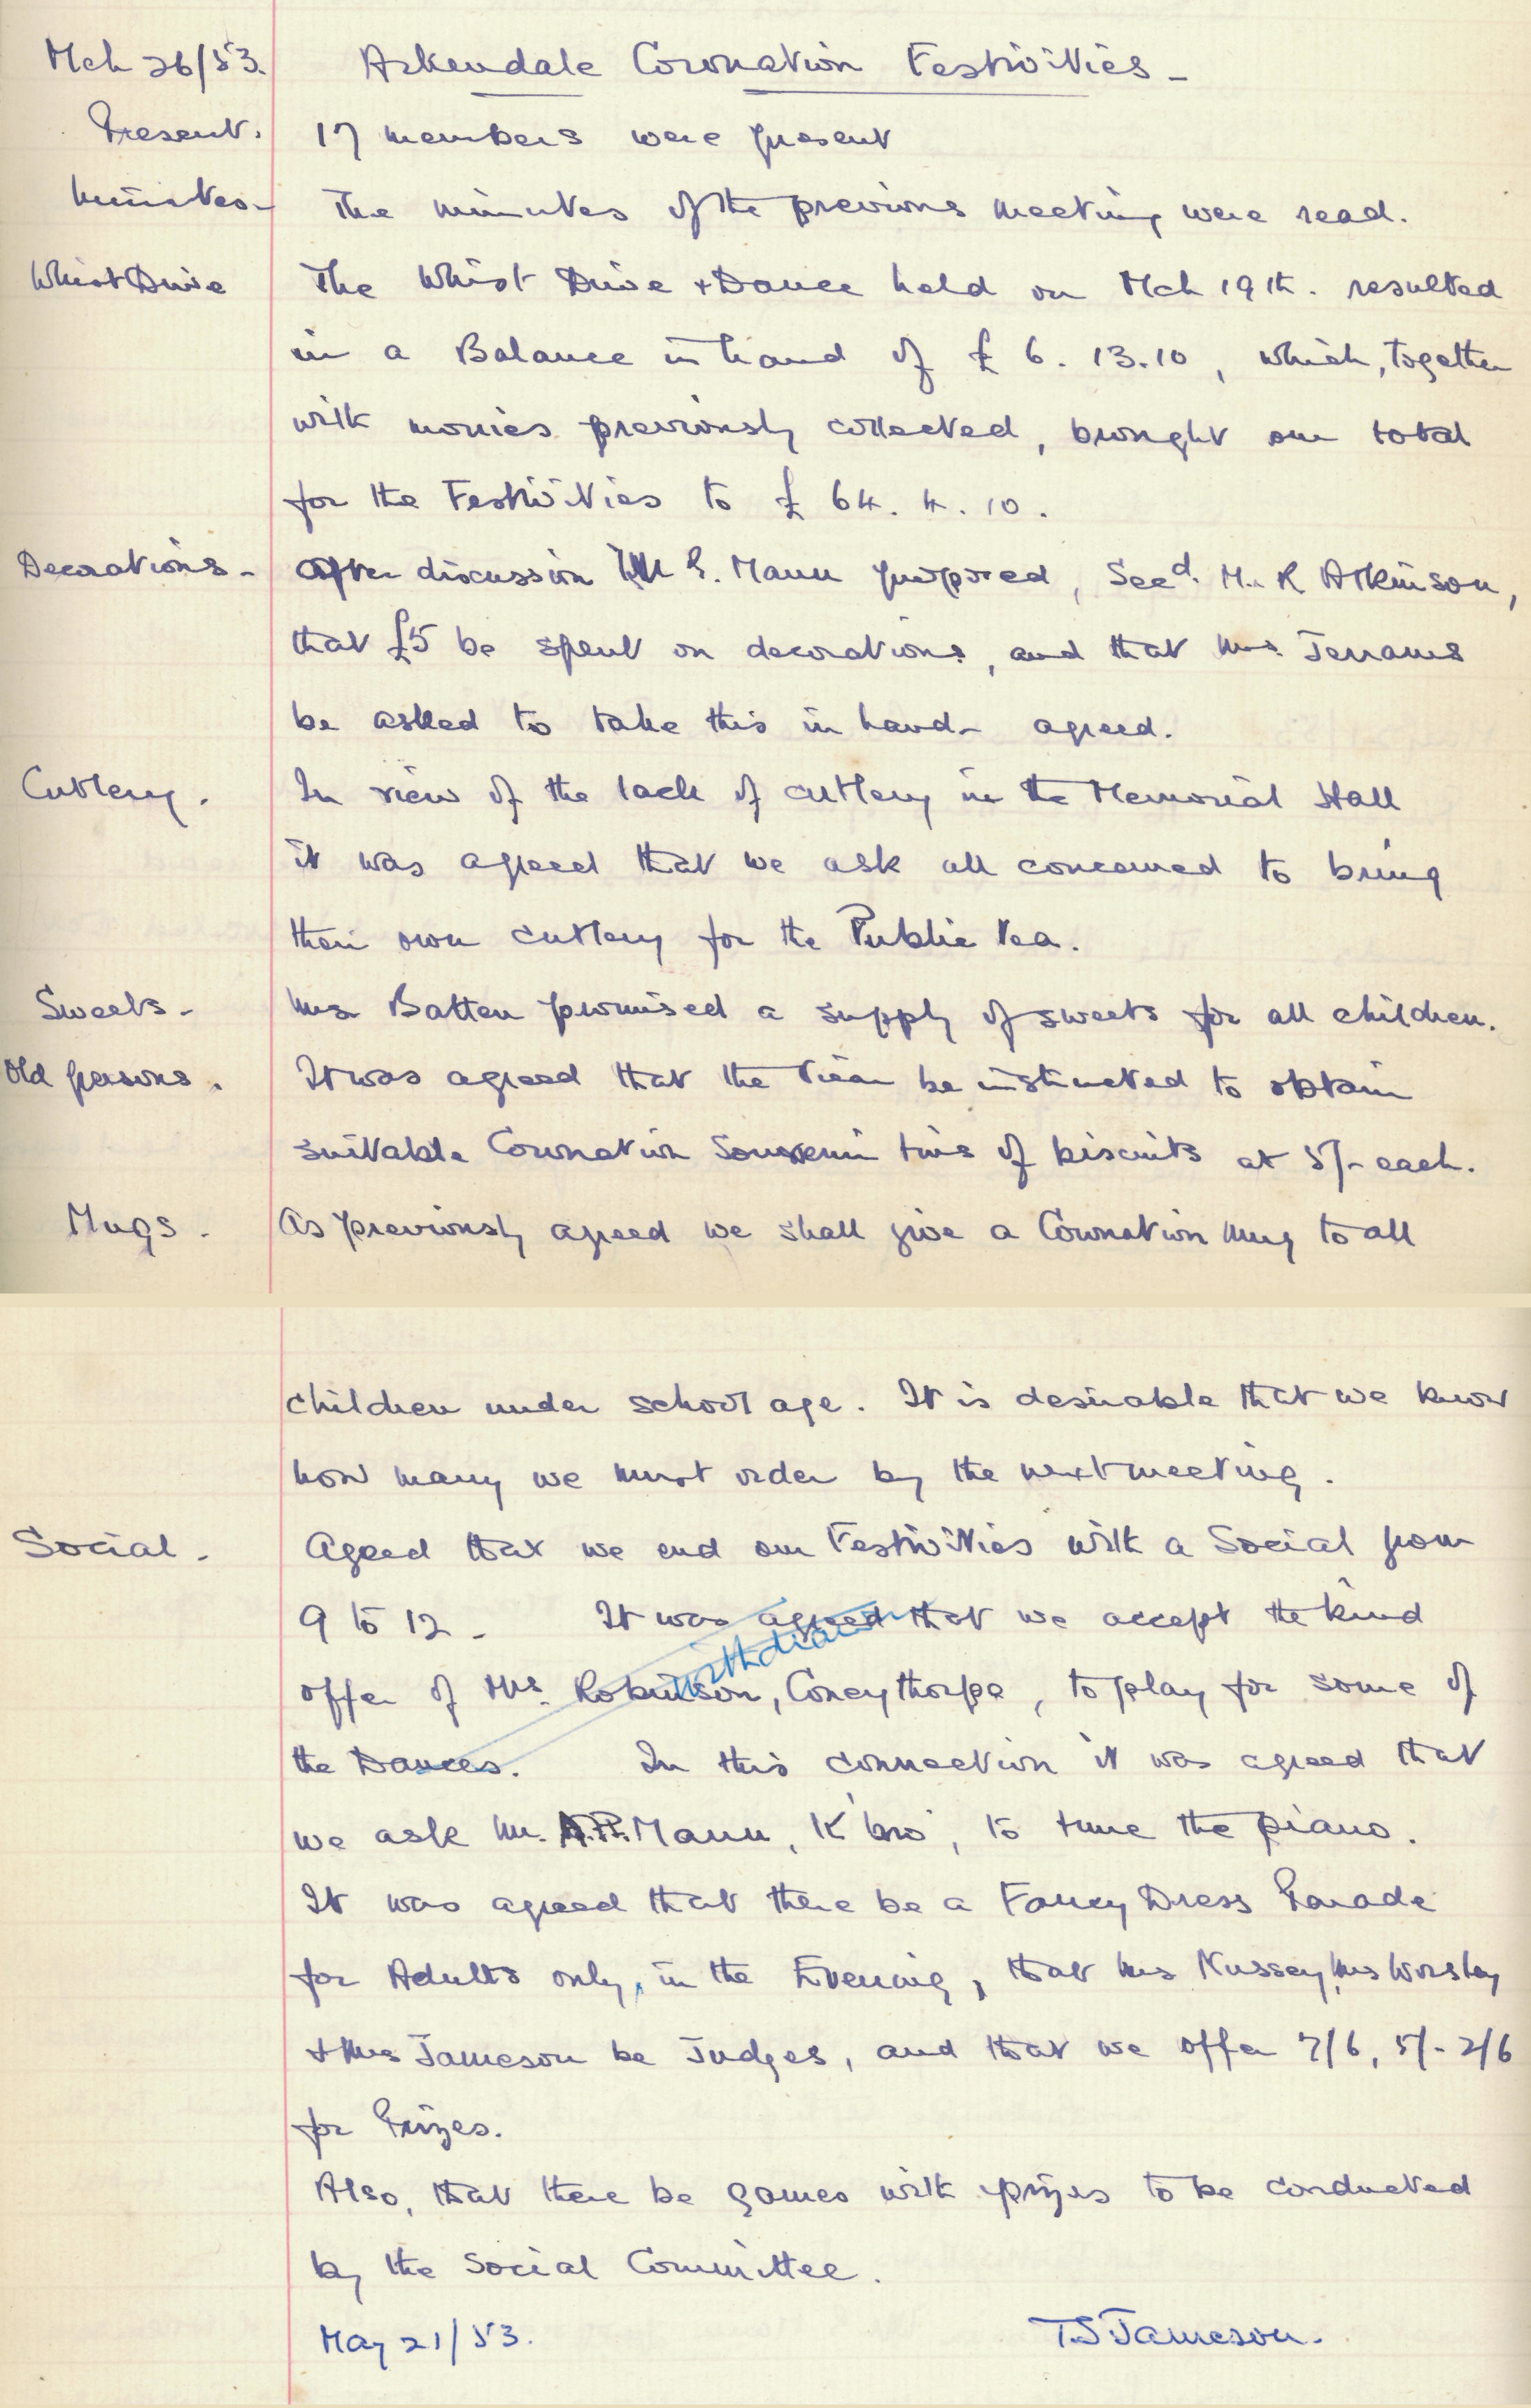 Mch 26/53. Arkendale Coronation Festivities -
Present. 17 members were present
Minutes - The minutes of the previous meeting were read.
Whist Drive The Whist Drive + Dance held on Mch 19th. resulted
in a Balance in hand of £ 6. 13. 10, which, together
with monies previously collected, brought our total
for the Festivities to £ 64. 4. 10.
Decorations - After discussion Mr G. Mann proposed, Secd. Mr. R Atkinson,
that £5 be spent on decorations, and that Mrs. Terrans
be asked to take this in hand - agreed.
Cutlery. In view of the lack of cutlery in the Memorial Hall
it was agreed that we ask all concerned to bring
their own cutlery for the Public tea.
Sweets - Mrs Batten promised a supply of sweets for all children.
Old persons. It was agreed that the be instructed to obtain
suitable Coronation Souvenir tins of biscuits at 5/- each.
Mugs. As previously agreed we shall give a Coronation Mug to all
children under school age. It is desirable that we know
how many we must order by the next meeting.
Social. Agreed that we end our Festivities with a Social from
9 to 12 - It was agreed that we accept the kind
withdrawn
offer of Mrs. Robinson, Coneythorpe, to play for some of
the Dances. In this connection it was agreed that
we ask Mr. A.P. Mann, K'bro', to tune the piano.
It was agreed that there be a Fancy Dress Parade
for Adults only, in the Evening, that Mrs Nussey, Mrs Worsley
+ Mrs Jameson be Judges, and that we offer 7/6, 5/- 2/6
for Prizes.
Also, that there be games with prizes to be conducted
by the Social Committee.
May 21/53. T.S Jameson.